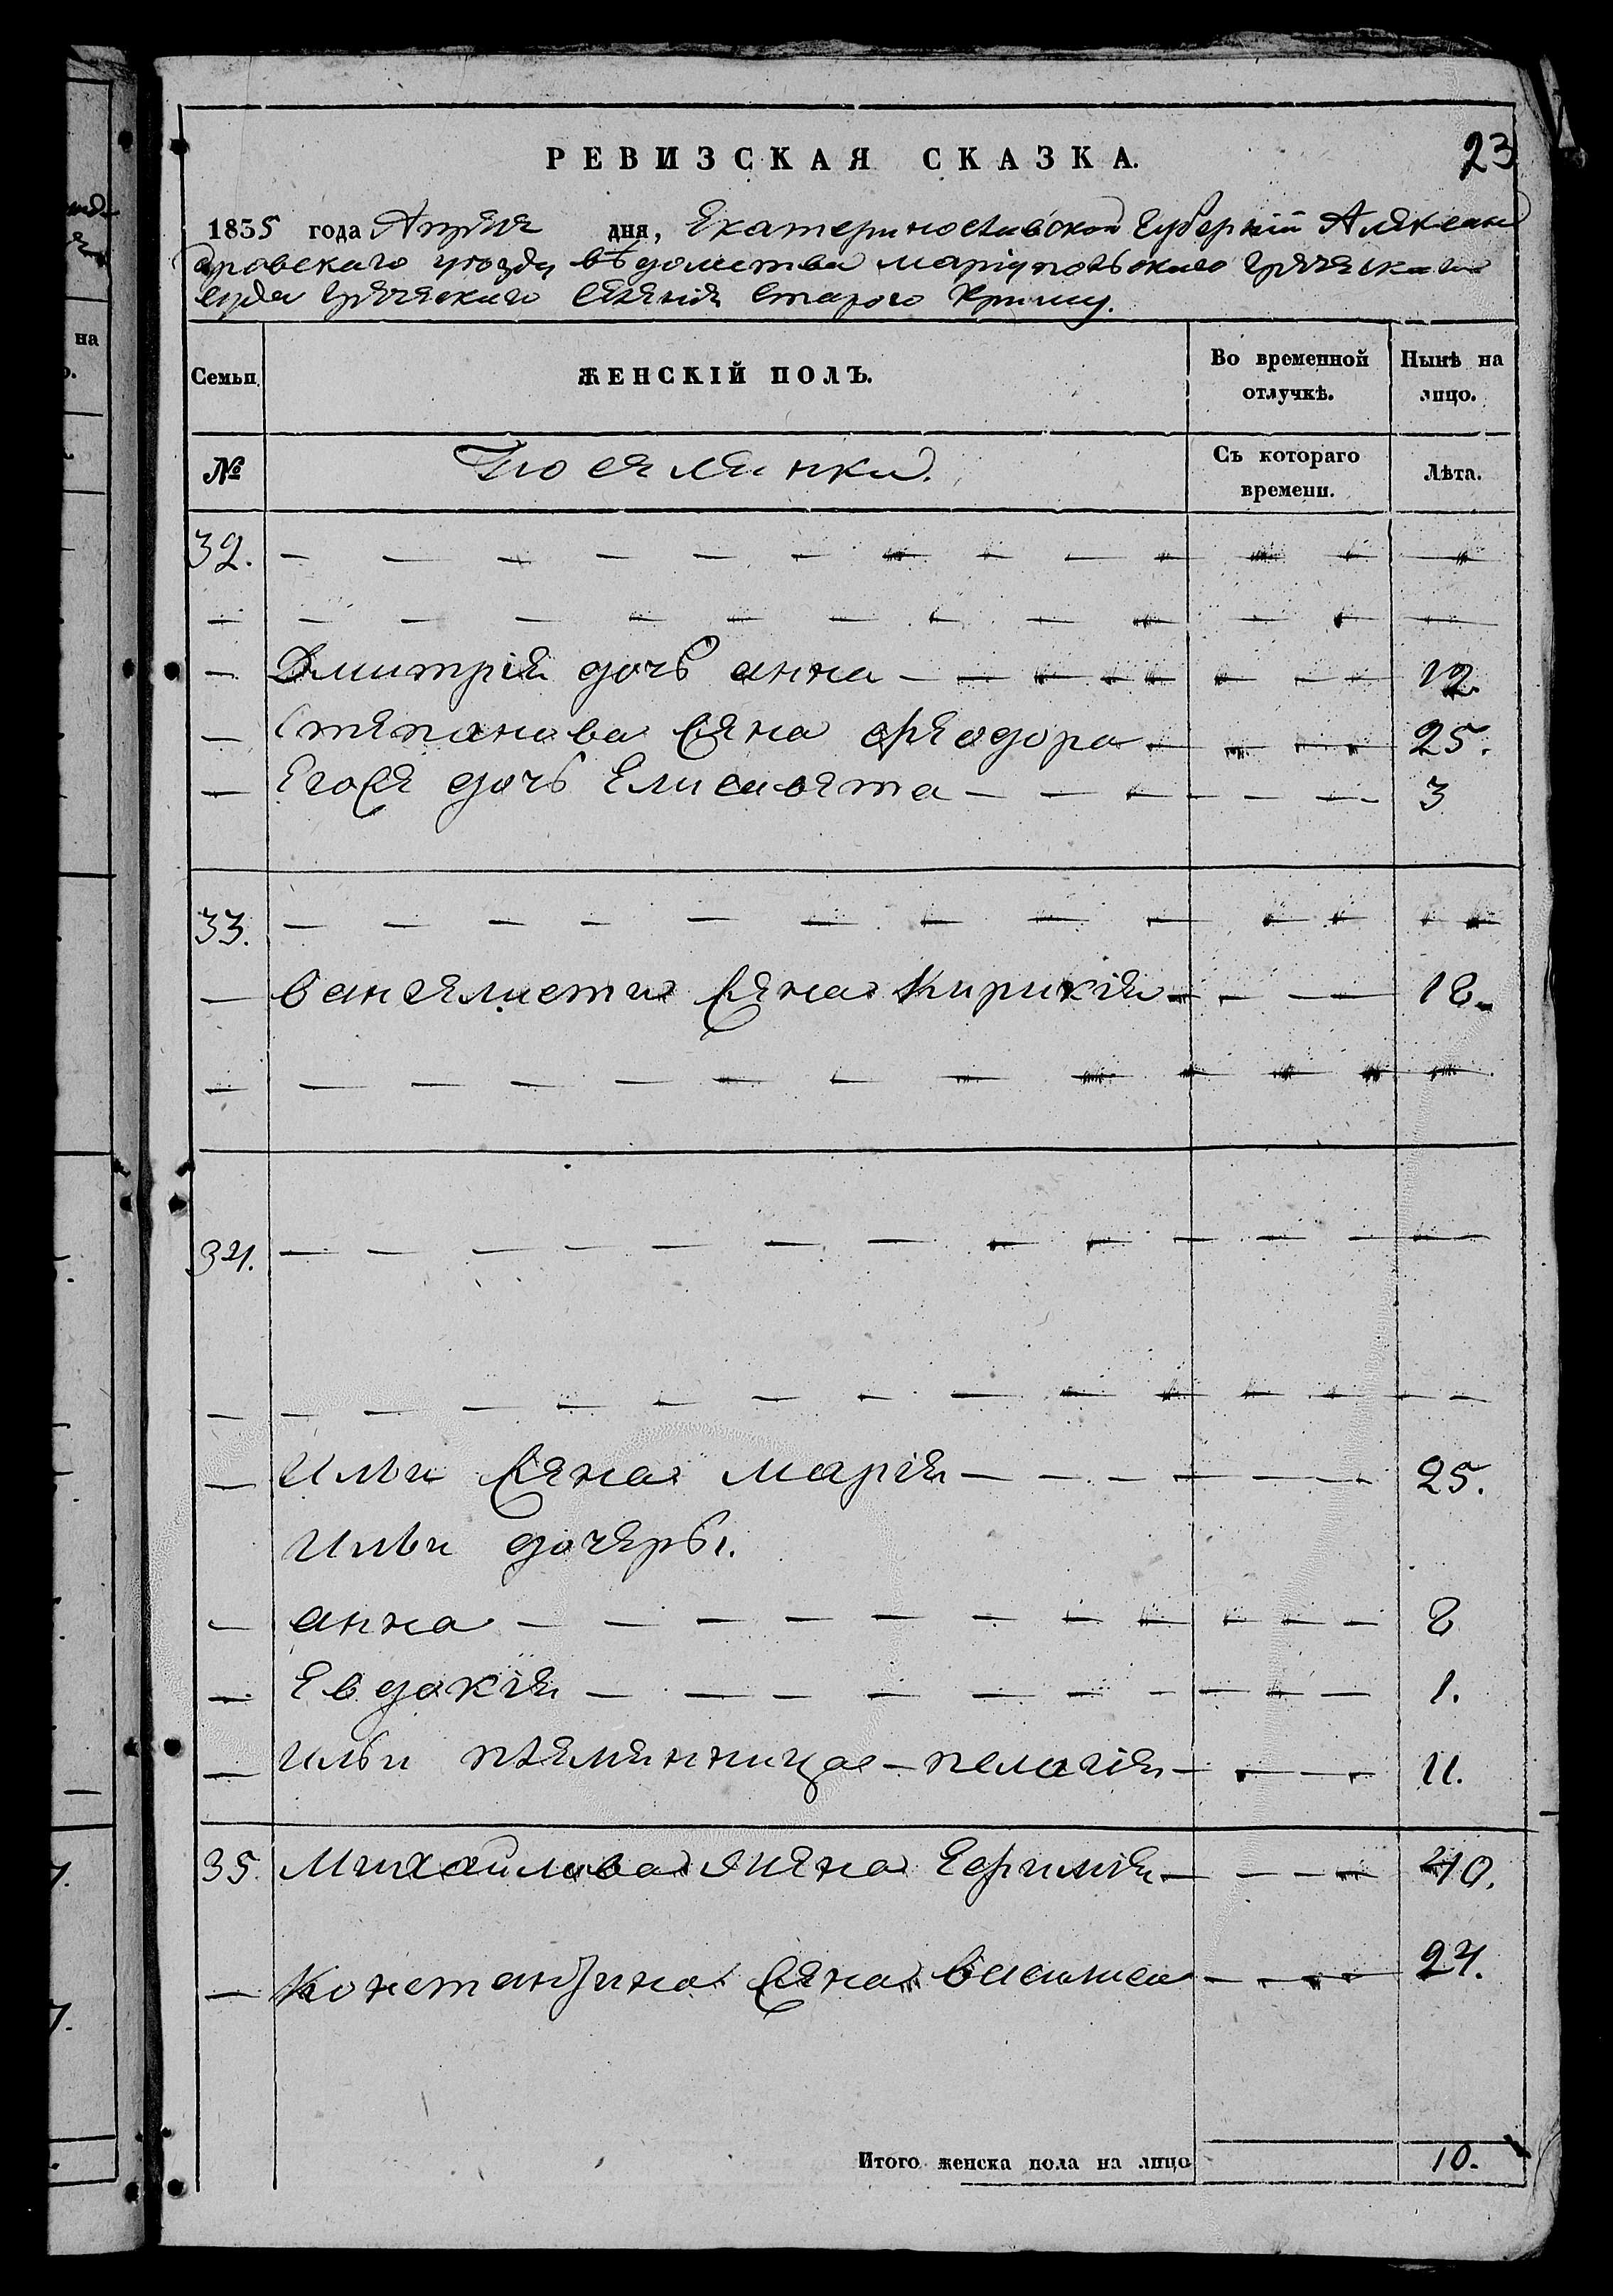 РЕВИЗСКАЯ СКАЗКА.
23
1835 года Апреля дня, Екатеринославской Губернии Алексан
дровскаго уезда ведомства мариупольскаго греческаго
суда греческаго селения Старого Крыму.
на
Семьи
ЖЕНСКІЙ ПОЛЪ.
Во временной отлучкѣ.
Нынѣ на лицо.
№
Поселянки.
Съ котораго времени.
Лѣта.
32. — — — — — — — — — —
— — — — — — — — — —
— Дмитрія дочь анна — — — — — 12.
— Степанова жена феодора — — — 25.
— Его же дочь Елисавета — — — — 3
33. — — — — — — — — — —
— вангелиста жена Кирикія — — — 18.
— — — — — — — — — —
34. — — — — — — — — — —
— — — — — — — — — —
— Ильи жена марія — — — — — 25.
Ильи дочеры.
— анна — — — — — — — — 8
— Евдокія — — — — — — — 1.
— Ильи племянница — пелагія — — — 11.
35. Михайлова жена Ефимия — — — 40.
— Константина жена Василиса — — — 24.
Итого женска пола на лицо 10.